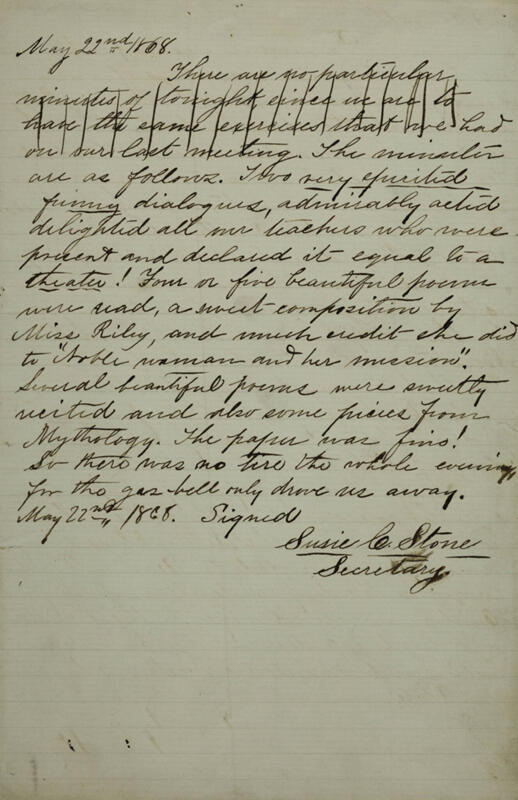 May 22nd 1868.
There are no particular
minutes of tonight since we are to
have the same exercises that we had
on our last meeting. The minutes
are as follows. Two very spirited
funny dialogues, admirably acted
delighted all our teachers who were
present and declared it equal to a
theater! Four or five beautiful poems
were read, a sweet composition by
Miss Riley, and much credit she did
to "Noble woman and her mission".
Several beautiful poems were sweetly
recited and also some pieces from
Mythology. The paper was fine!
So there was no tire the whole evening,
for the gas-bell only drove us away.
May 22nd, 1868. Signed
Susie C. Stone
Secretary.